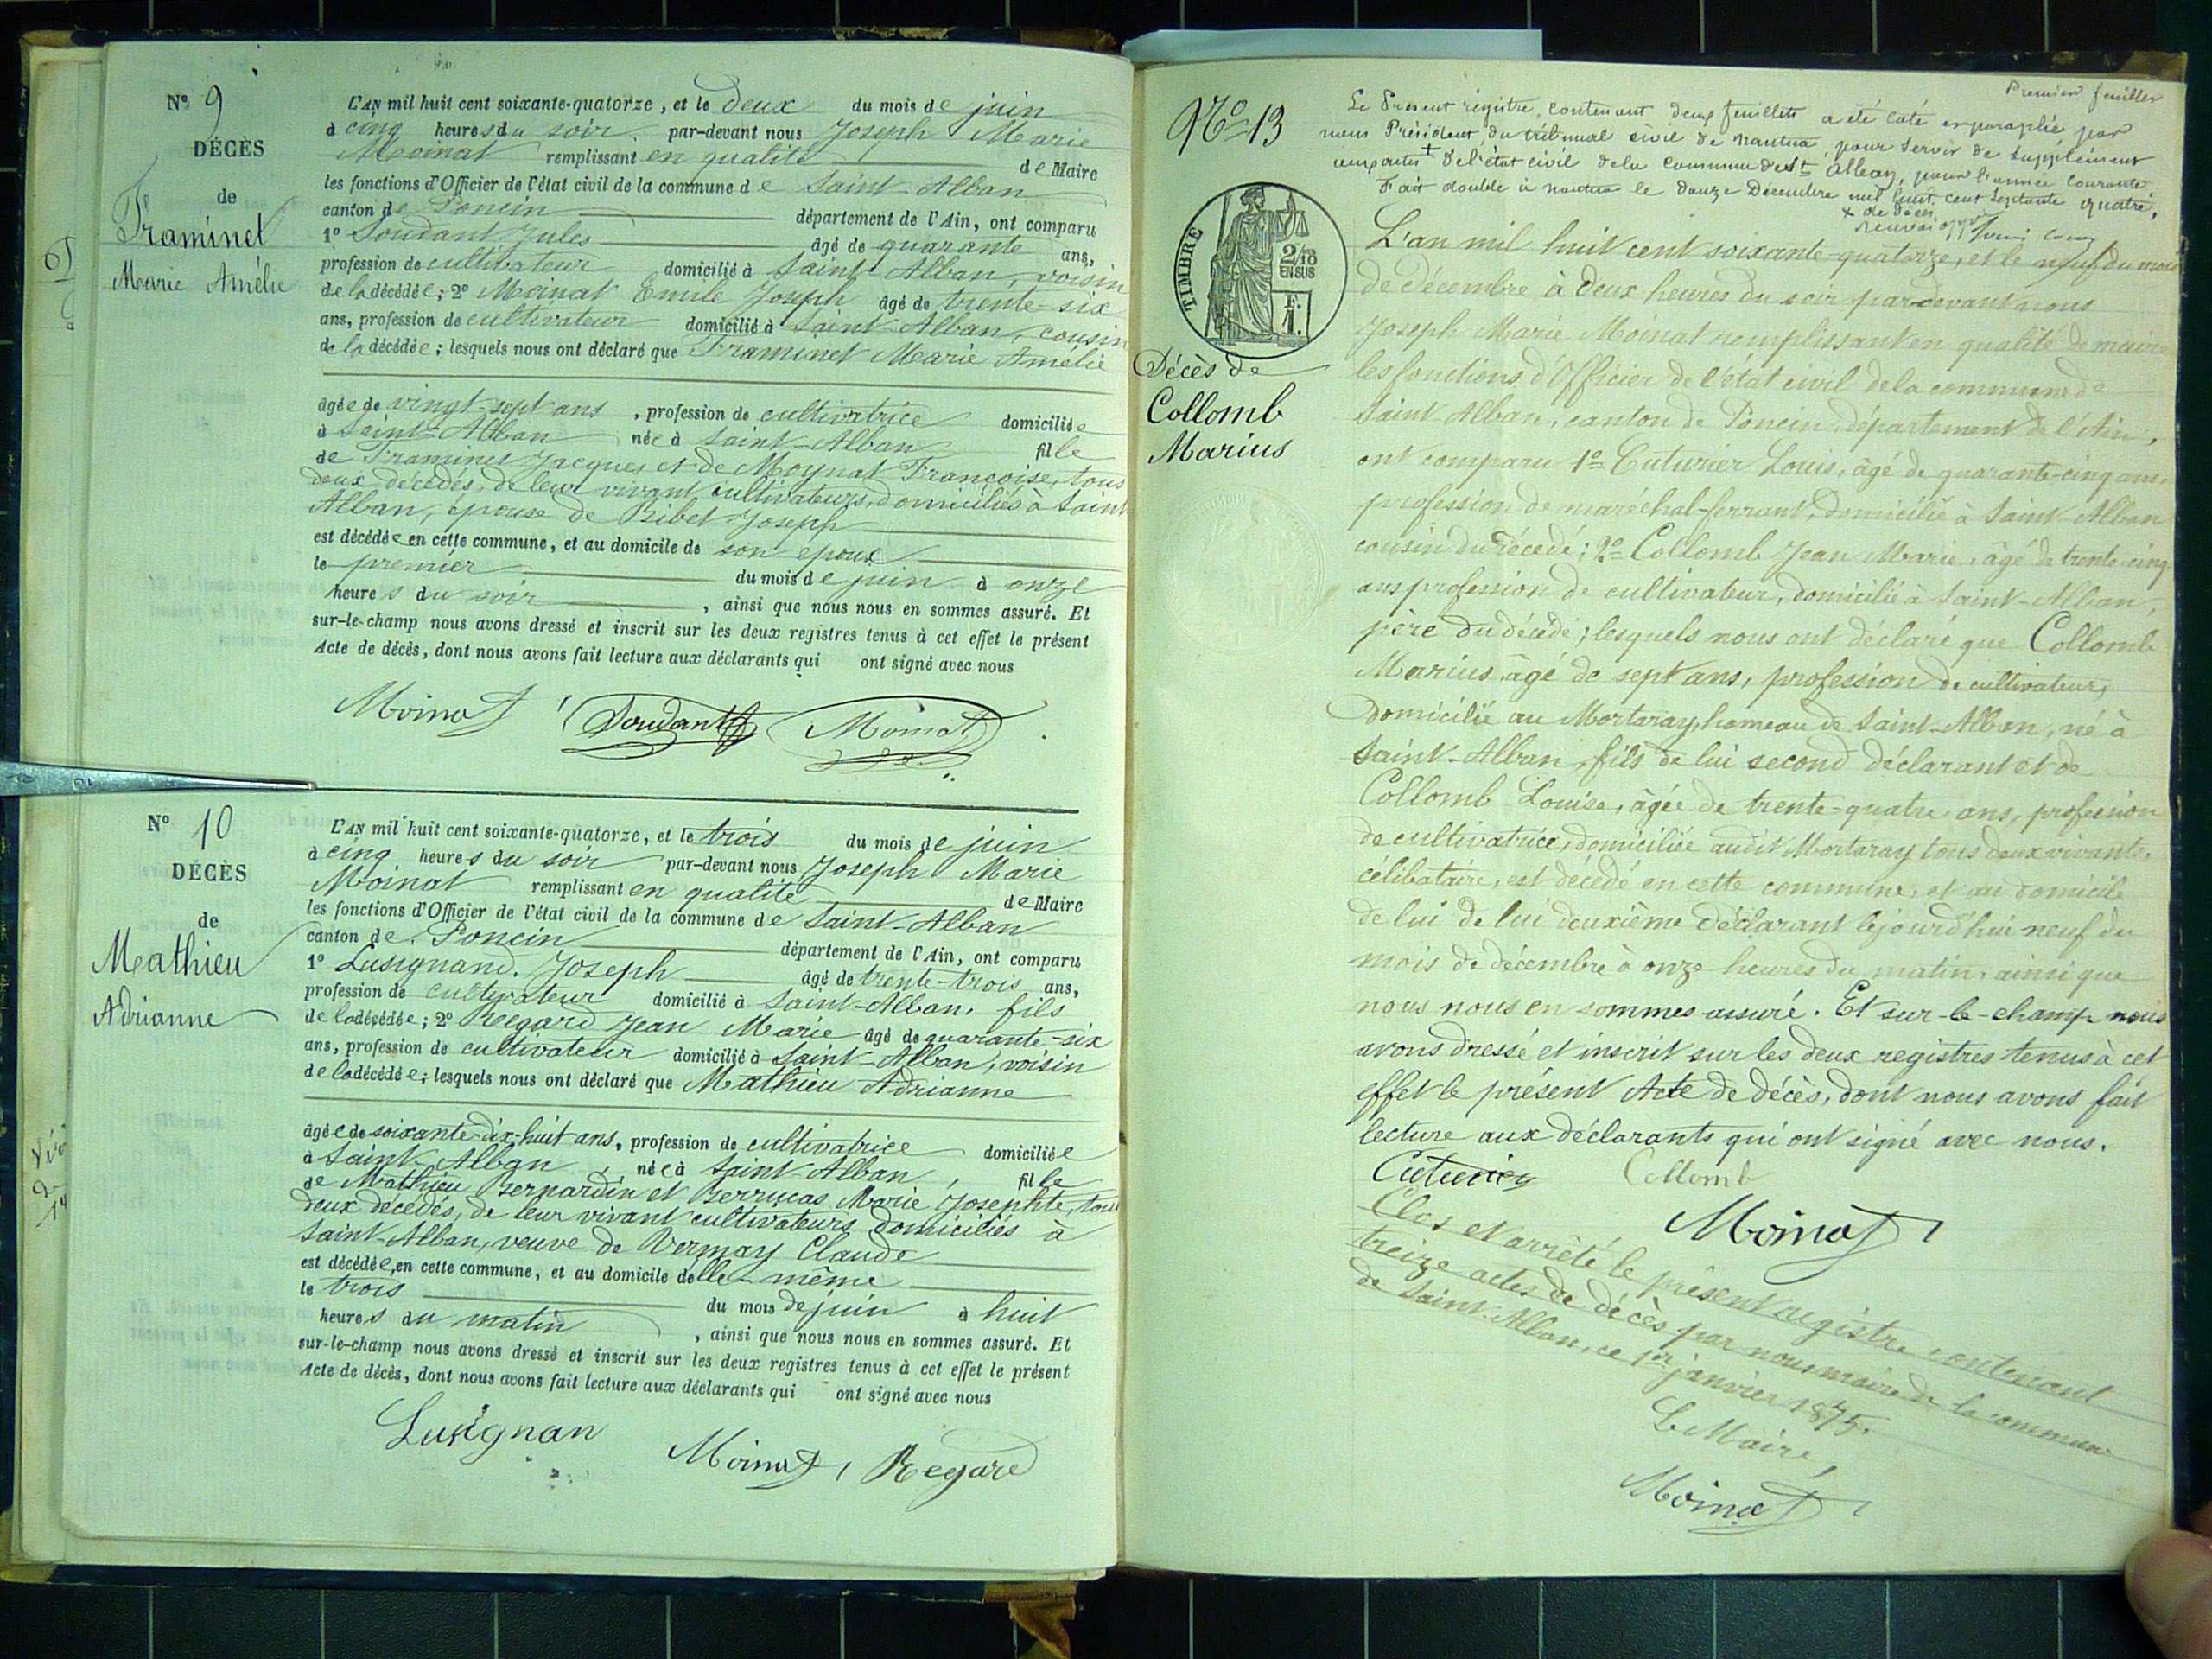 N° 9
DÉCÈS
de
Framinet
Marie Amélie
L'AN mil huit cent soixante-quatorze, et le deux du mois de juin
à cinq heures du soir par-devant nous Joseph Marie
Moinat remplissant en qualité de Maire
les fonctions d'Officier de l'état civil de la commune de Saint-Alban
canton de Poncin département de l'Ain, ont comparu
1° Soudant Jules âgé de quarante ans,
profession de cultivateur domicilié à Saint-Alban, voisin
de la décédée; 2° Moinat Emile Joseph âgé de trente-six
ans, profession de cultivateur domicilié à Saint-Alban, cousin
de la décédée; lesquels nous ont déclaré que Framinet Marie Amélie
âgée de vingt-sept ans, profession de cultivatrice domiciliée
à Saint-Alban née à Saint-Alban fille
de Framinet Jacques et de Moynat Françoise, tous
deux décédés, de leur vivant cultivateurs, domiciliés à Saint
Alban, épouse de Ribet Joseph
est décédée en cette commune, et au domicile de son époux
le premier du mois de juin à onze
heures du soir, ainsi que nous nous en sommes assuré. Et
sur-le-champ nous avons dressé et inscrit sur les deux registres tenus à cet effet le présent
Acte de décès, dont nous avons fait lecture aux déclarants qui ont signé avec nous
Moinat Soudant Moinat
N° 10
DÉCÈS
de
Mathieu
Adrianne
L'AN mil huit cent soixante-quatorze, et le trois du mois de juin
à cinq heures du soir par-devant nous Joseph Marie
Moinat remplissant en qualité de Maire
les fonctions d'Officier de l'état civil de la commune de Saint-Alban
canton de Poncin département de l'Ain, ont comparu
1° Lusignand Joseph âgé de trente-trois ans,
profession de cultivateur domicilié à Saint-Alban, fils
de la décédée; 2° Regard Jean Marie âgé de quarante-six
ans, profession de cultivateur domicilié à Saint-Alban, voisin
de la décédée; lesquels nous ont déclaré que Mathieu Adrianne
âgée de soixante-dix-huit ans, profession de cultivatrice domiciliée
à Saint-Alban, née à Saint-Alban, fille
de Mathieu Bernardin et Berrucas Marie Josephte, tous
deux décédés, de leur vivant cultivateurs domiciliés à
Saint-Alban, veuve de Vermay Claude
est décédée, en cette commune, et au domicile d'elle-même
le trois du mois de juin à huit
heures du matin, ainsi que nous nous en sommes assuré. Et
sur-le-champ nous avons dressé et inscrit sur les deux registres tenus à cet effet le présent
Acte de décès, dont nous avons fait lecture aux déclarants qui ont signé avec nous
Lusignan Moinat Regard
Premier feuillet
Le Présent registre, contenant deux feuillets a été coté et paraphé par
nous Président du tribunal civil de Nantua, pour servir de supplément
+ de l'état civil de la Commune de St Alban, pour l'année courante.
Fait double à Nantua le douze Décembre mil huit cent septante quatre.
+ de décès
N° 13
TIMBRE
2/10
EN SUS
F.
1.
Décès de
Collomb
Marius
L'an mil huit cent soixante-quatorze, et le neuf du mois
de décembre à deux heures du soir par devant nous
Joseph Marie Moinat remplissant en qualité de maire
les fonctions d'Officier de l'état civil de la commune de
Saint Alban, canton de Poncin, département de l'Ain,
ont comparu 1° Cuturier Louis, âgé de quarante-cinq ans,
profession de maréchal-ferrant, domicilié à Saint-Alban
cousin du décédé; 2° Collomb Jean Marie, âgé de trente-cinq
ans profession de cultivateur, domicilié à Saint-Alban,
père du décédé; lesquels nous ont déclaré que Collomb
Marius, âgé de sept ans, profession de cultivateur,
domicilié au Mortaray hameau de Saint-Alban, né à
Saint-Alban, fils de lui second déclarant et de
Collomb Louise, âgée de trente-quatre ans, profession
de cultivatrice, domiciliée audit Mortaray tous deux vivants,
célibataire, est décédé en cette commune, et au domicile
de lui de lui deuxième déclarant le jourd'hui neuf du
mois de décembre à onze heures du matin, ainsi que
nous nous en sommes assuré. Et sur-le-champ nous
avons dressé et inscrit sur les deux registres tenus à cet
effet le présent Acte de décès, dont nous avons fait
lecture aux déclarants qui ont signé avec nous.
Cuturier Collomb
Moinat
Clos et arrêté le présent registre contenant
treize actes de décès par nous maire de la commune
de Saint-Alban, ce 1er janvier 1875.
Le Maire,
Moinat